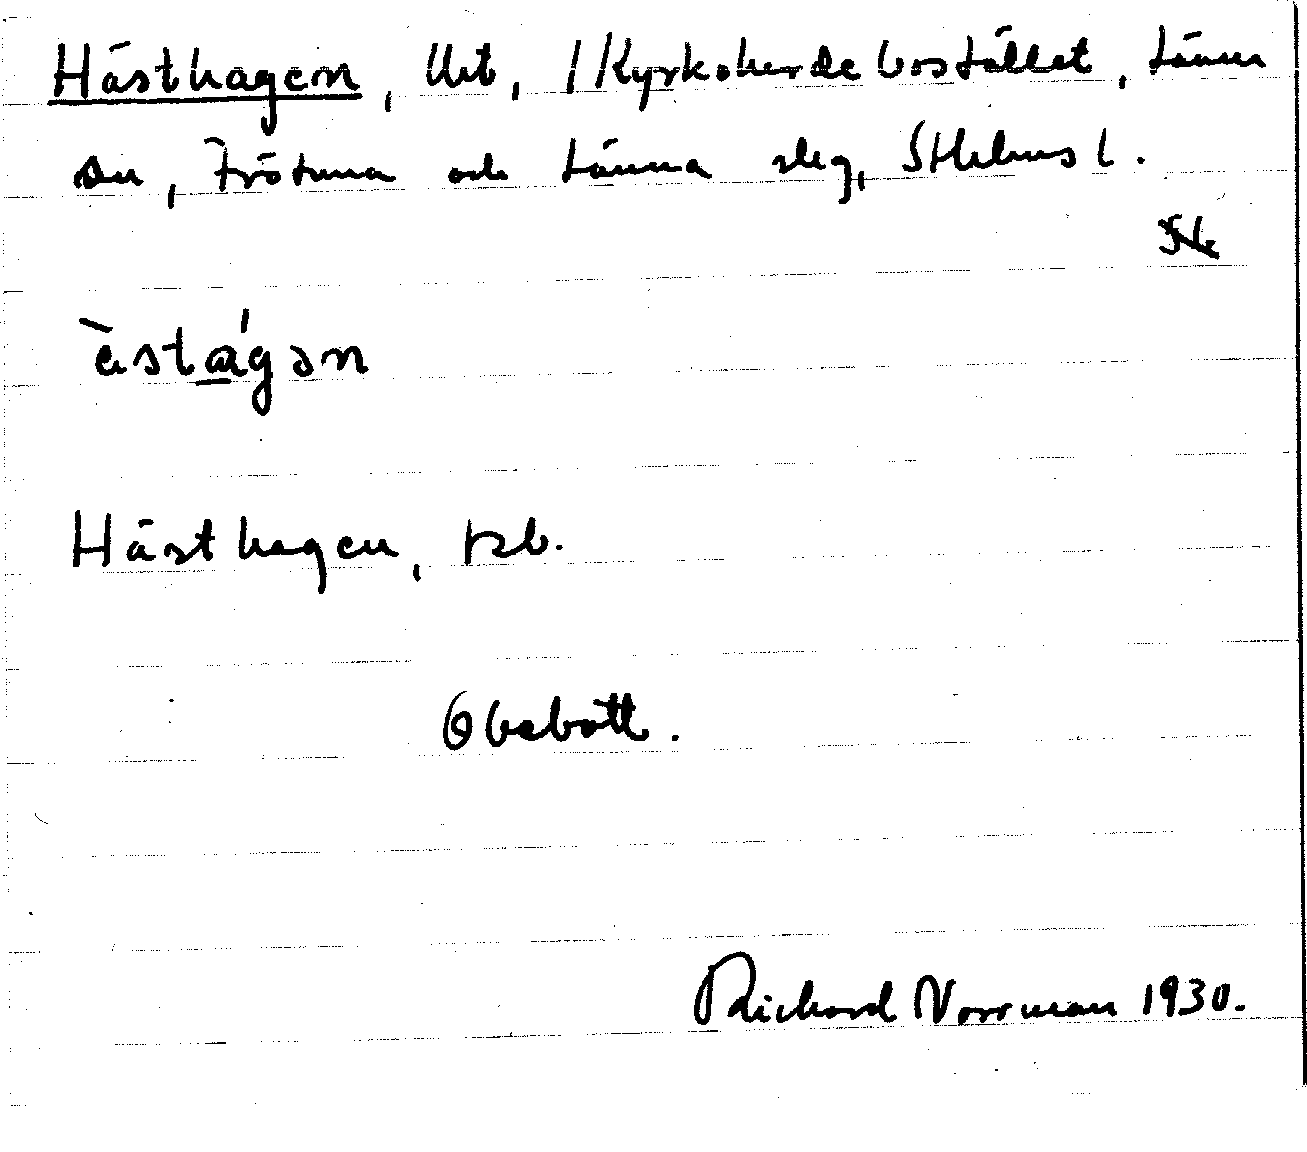 Hästhagen, Urt, / Kyrkoherdebostället, Länna
sn, Frötuna och Länna slg, Sthlms l.
ästagən
Hästhagen, tsb.
Obebott.
Richard Norrman 1930.